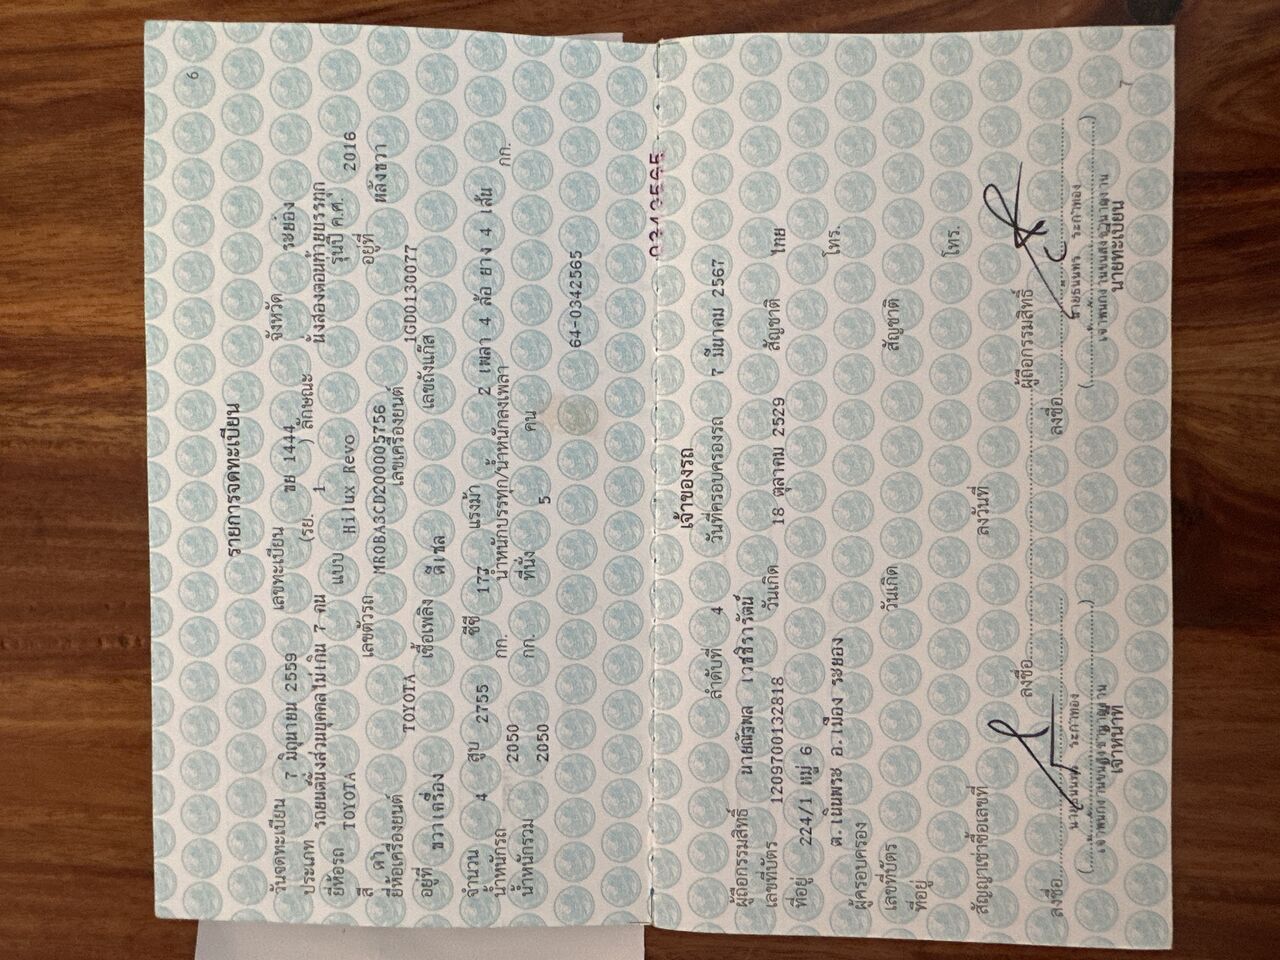 6
รายการจดทะเบียน
วันจดทะเบียน 7 มิถุนายน 2559 เลขทะเบียน ขย 1444 จังหวัด ระยอง
ประเภท รถยนต์นั่งส่วนบุคคลไม่เกิน 7 คน (รย. 1 ) ลักษณะ นั่งสองตอนท้ายบรรทุก
ยี่ห้อรถ TOYOTA แบบ Hilux Revo รุ่นปี ค.ศ. 2016
สี ดำ เลขตัวรถ MR0BA3CD200005756 อยู่ที่ หลังขวา
ยี่ห้อเครื่องยนต์ TOYOTA เลขเครื่องยนต์ 1GD0130077
อยู่ที่ ขวาเครื่อง เชื้อเพลิง ดีเซล เลขถังแก๊ส
จำนวน 4 สูบ 2755 ซีซี 177 แรงม้า 2 เพลา 4 ล้อ ยาง 4 เส้น
น้ำหนักรถ 2050 กก. น้ำหนักบรรทุก/น้ำหนักลงเพลา กก.
น้ำหนักรวม 2050 กก. ที่นั่ง 5 คน
64-0342565
เจ้าของรถ
ลำดับที่ 4 วันที่ครอบครองรถ 7 มีนาคม 2567
ผู้ถือกรรมสิทธิ์ นายณัฐพล เวชชิรารัตน์
เลขที่บัตร 1209700132818 วันเกิด 18 ตุลาคม 2529 สัญชาติ ไทย
ที่อยู่ 224/1 หมู่ 6 โทร.
ต.เนินพระ อ.เมือง ระยอง
ผู้ครอบครอง
เลขที่บัตร วันเกิด สัญชาติ
ที่อยู่ โทร.
สัญญาเช่าซื้อเลขที่ ลงวันที่
ลงชื่อ ผู้ถือกรรมสิทธิ์
ลงชื่อ ลงชื่อ
ระกำทอง ระกำทอง
เจ้าหน้าที่ นายทะเบียน
7